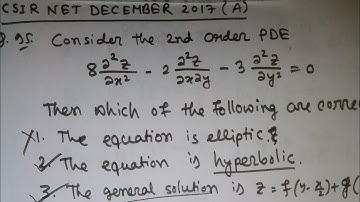 CSIR NET DECEMBER 2017 (A)
Q. 95. Consider the 2nd order PDE
8 ∂²z/∂x² - 2 ∂²z/∂x∂y - 3 ∂²z/∂y² = 0
Then which of the following are correc
1. The equation is elliptic.
2. The equation is hyperbolic.
3. The general solution is z = f(y - x/2) + g(